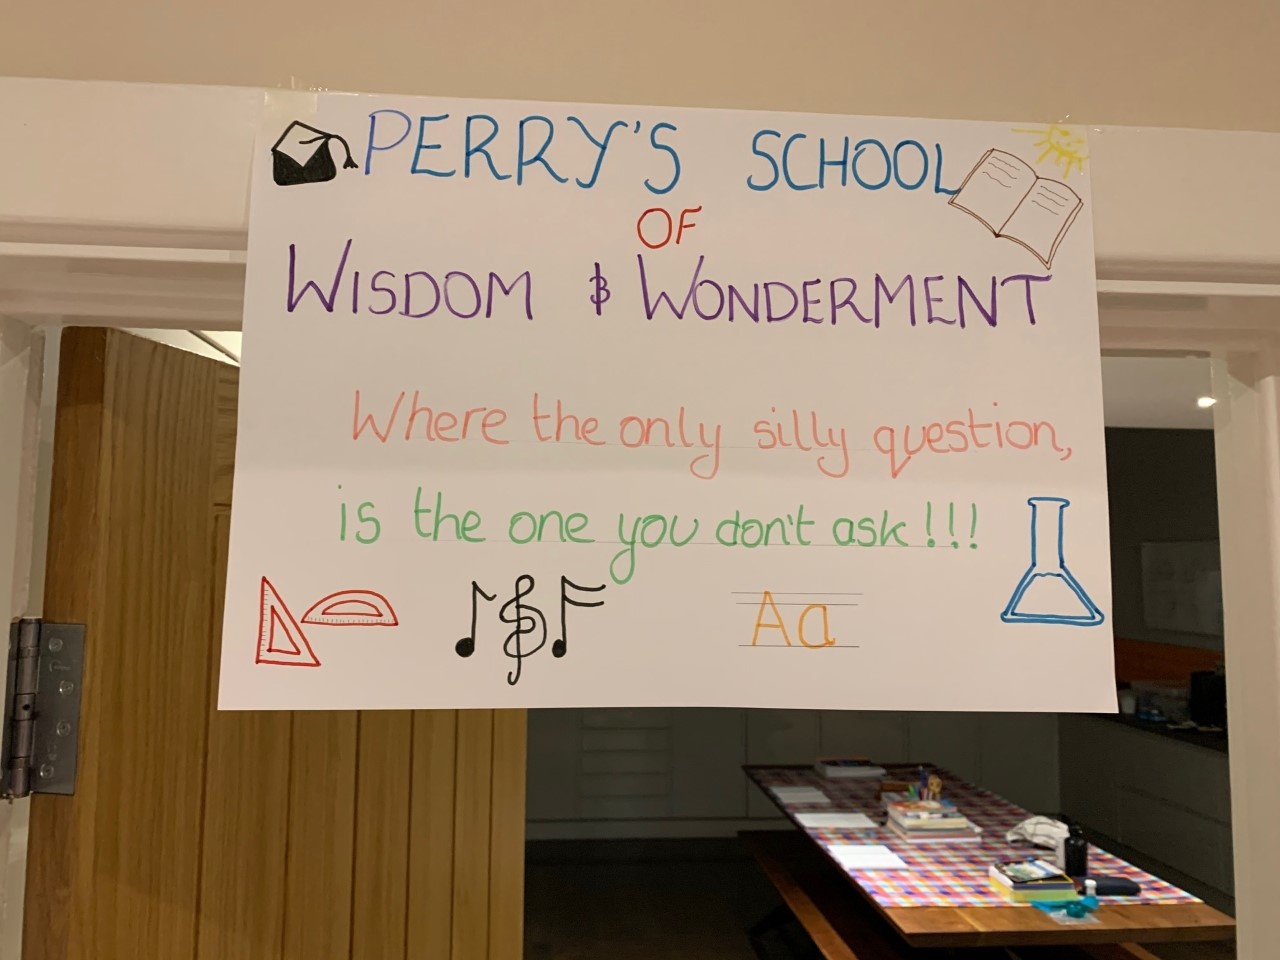 PERRY'S SCHOOL
OF
WISDOM & WONDERMENT
Where the only silly question,
is the one you don't ask!!!
Aa